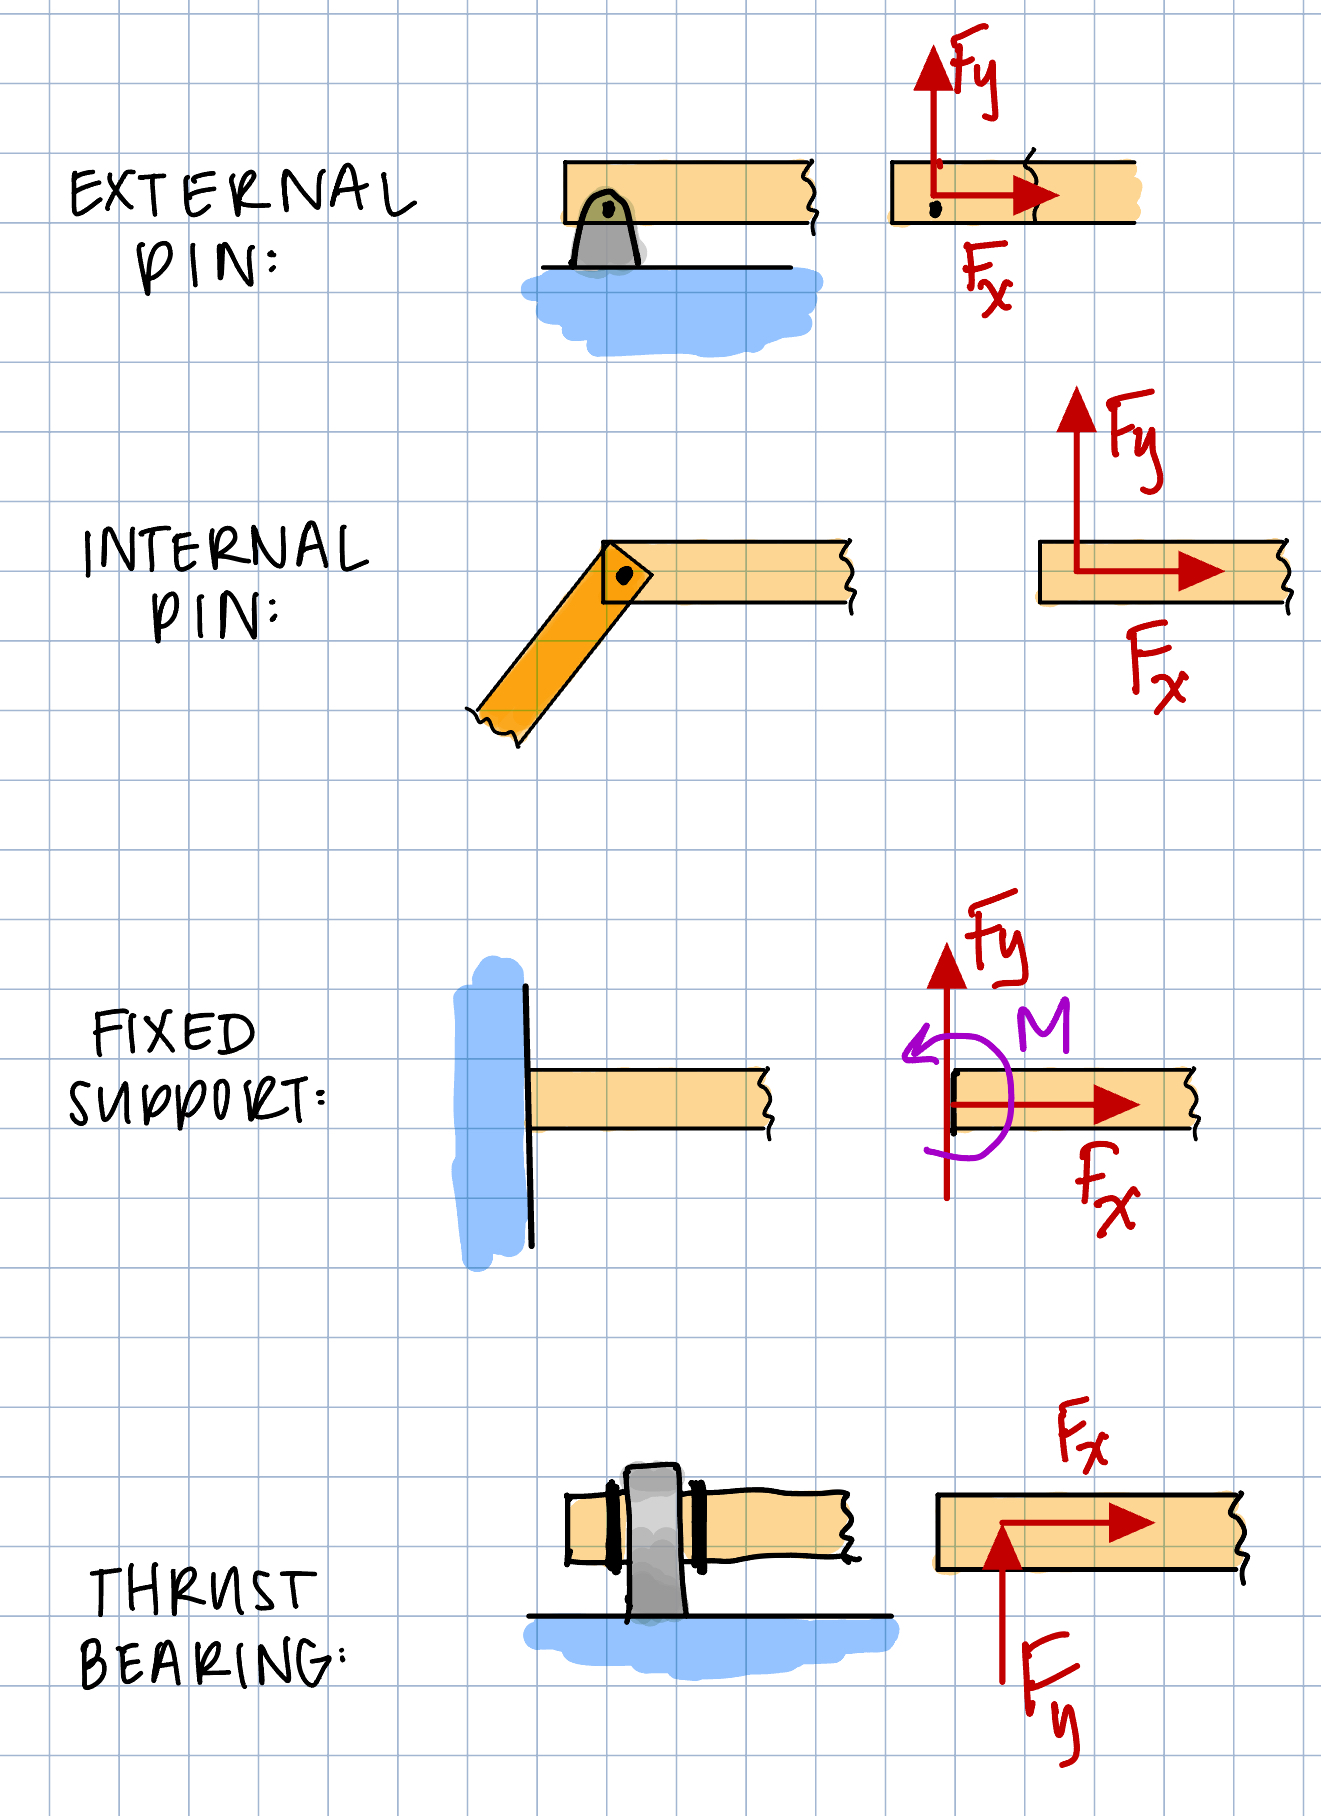 Fy
EXTERNAL
PIN:
Fx
Fy
INTERNAL
PIN:
Fx
Fy
M
FIXED
SUPPORT:
Fx
Fx
THRUST
BEARING:
Fy